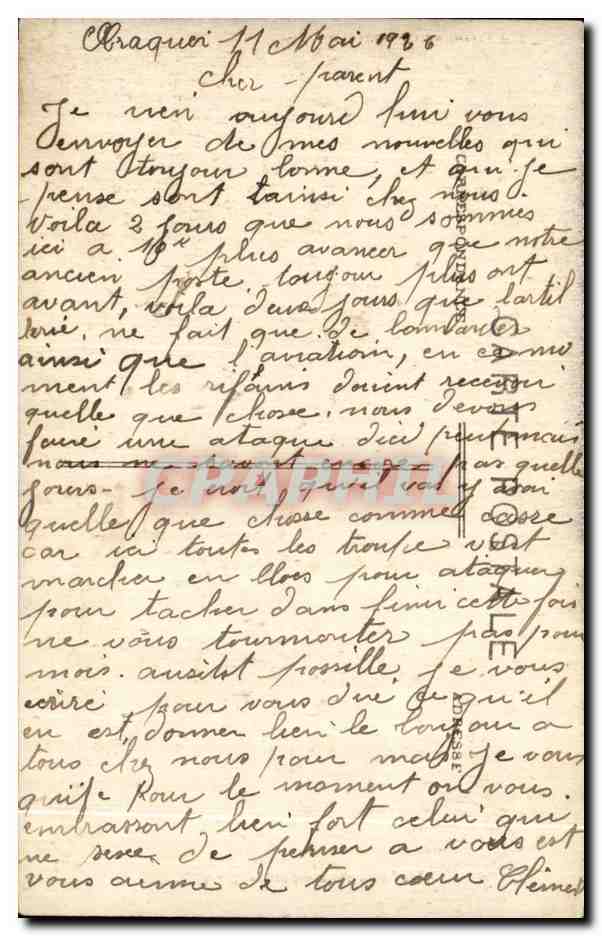 11 Mai 1926
cher parent
Je vien aujourd hui vous
envoyer de mes nouvelles qui
sont toujour bonne, et que je
pense sont tainsi chez nous.
Voila 2 jours que nous sommes
ici a plus avancer que notre
ancien poste toujour plus ont
avant, voila deux jours que lartil
lerie, ne fait que de bombarder
ainsi que l'aviation, en ce mo
ment les rifains doivent recevoir
quelle que chosee, nous devons
faire une ataque dici peut mais
nous ne savont encore pas quelle
jours - je crois, qu'il va y avoir
quelle que chosse comme casse
car ici toutes les troupe vont
marcher en bloc pour ataquer
pour tacher dans finir cette fois
ne vous tourmenter pas pour
mois. ausitot possille je vous
ecrire pour vous dire ce qu'il
en est, donner bien le bonjour a
tous chez nous pour mais je vous
quite Pour le moment on vous.
embrassont bien fort celui qui
ne sesse de penser a vous est
vous aimme de tous cœur Clément
CARTE POSTALE
CORRESPONDANCE
ADRESSE
CPAPHIL